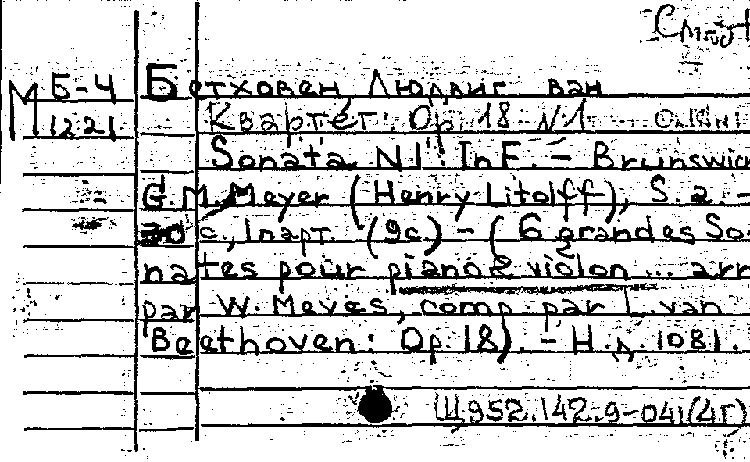 М Б-4
1221
Бетховен Людвиг ван
Квартет. Op. 18 N1
Sonata N1: In F. – Brunswic
G. M. Meyer (Henry Litolff), S. a. –
с., 1парт. (9с) – (6 grandes So-
nates pour piano & violon ... arr
par W. Meves, comp. par L. van
Beethoven: Op. 18). – Н.д. 1081.
Щ952.142.9-041(4Г)